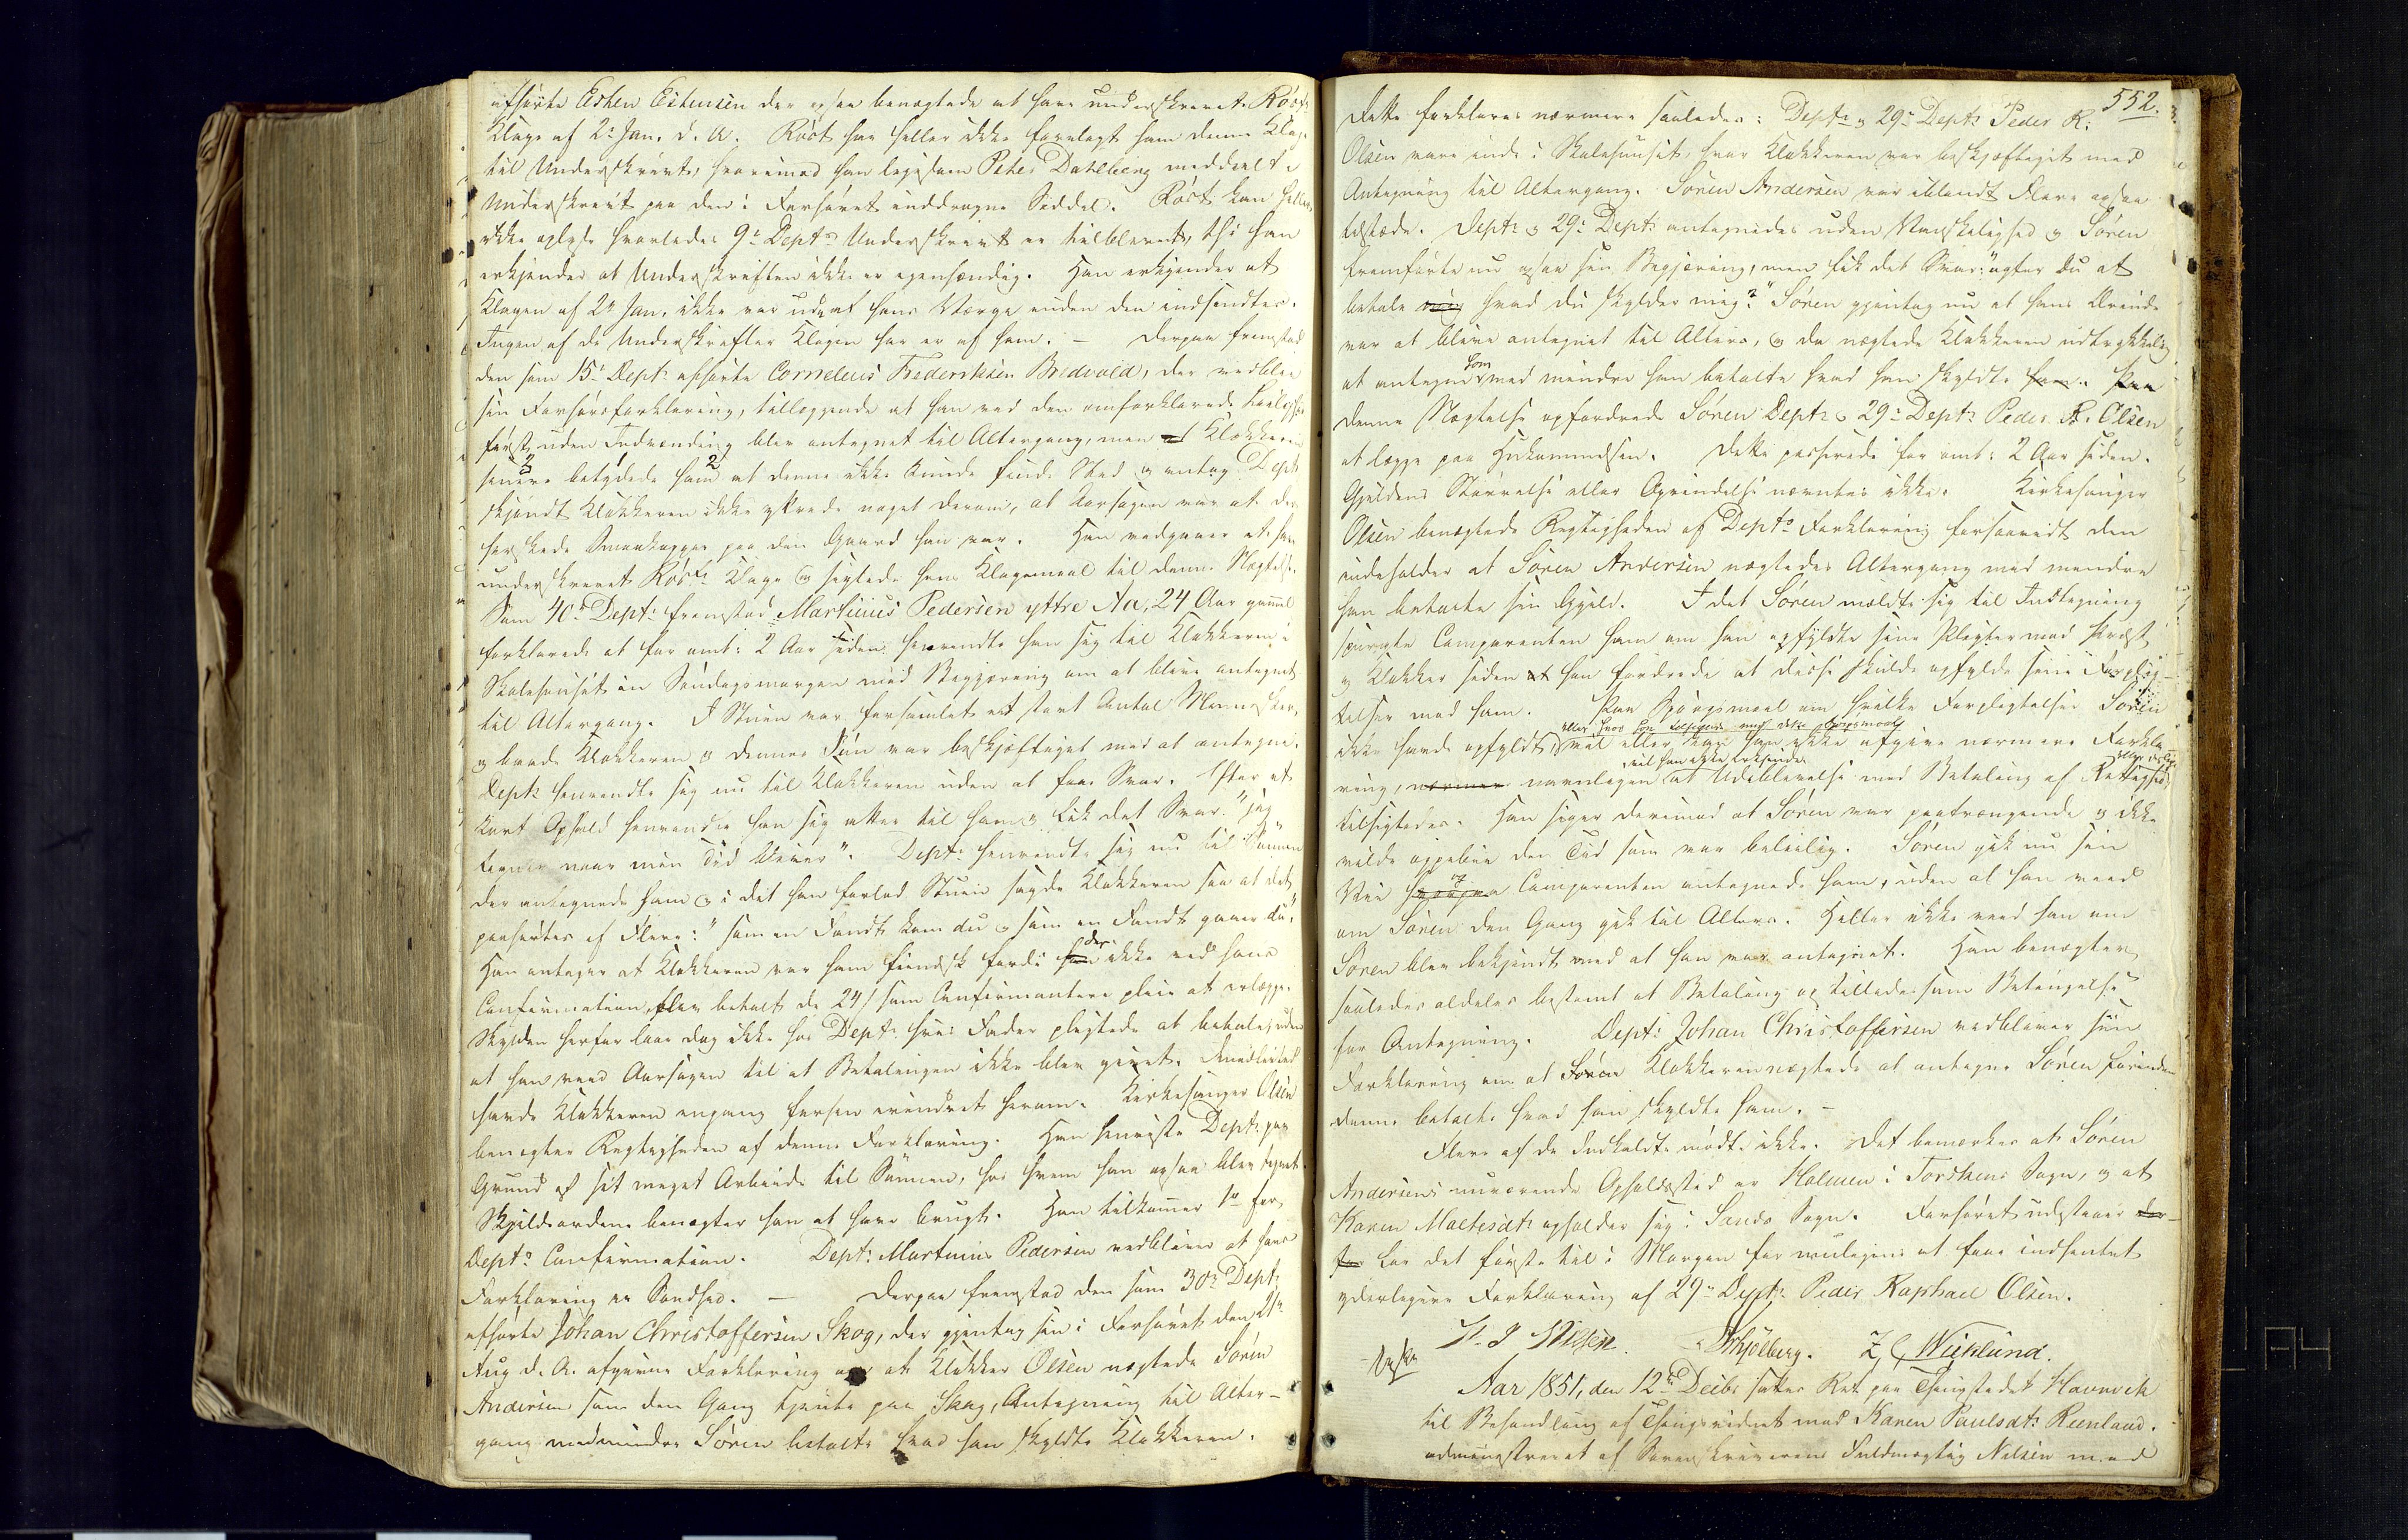 afhørte Esten Estensen der ogsaa benægtede at have underskrevet Røsts
Klage af 2: Jan. d. A. Røst har heller ikke forelagt ham denne Klage
til Underskrivt, hvorimod han ligesom Peter Dahlberg meddeelte
Underskrivt paa den i Forhøret inddragne Seddel. Røst kan heller
ikke oplyse hvorledes 9: Depts Underskrivt er tilblevet, thi han
erkjender at Underskriften ikke er egenhændig. Han erkjender at
Klagen af 2: Jan. ikke var ude af hans Værge inden den indsendtes.
Ingen af de Underskrifter Klagen har er af ham. — Derpaa fremstod
den som 15: Dept: afhørte Cornelius Frederiksen Bredvold, der vedblev
sin Forhørsforklaring, tillæggende at han ved den omforklarede
først uden Indvending blev antegnet til Altergang, men at Klokkeren
senere betydede ham at denne ikke kunde finde Sted og antog Dept:
skjøndt Klokkeren ikke yttrede noget derom, at Aarsagen var at der
herskede Smaakopper paa den Gaard han var. Han vedgaaer at have
underskrevet Røsts Klage og sigtede hans Klagemaal til denne Nægtelse.
Som 40: Dept: fremstod Martinus Pedersen yttre Aa, 24 Aar gammel
forklarede at for omt: 2 Aar siden henvendte han sig til Klokkeren i
Skolehuset en Søndagsmorgen med Begjæring om at blive antegnet
til Altergang. I Stuen var forsamlet et stort Antal Mennesker,
og baade Klokkeren og dennes Søn var beskjæftiget med at antegne.
Dept: henvendte sig nu til Klokkeren uden at faae Svar. Efter et
kort Ophold henvendte han sig atter til ham og fik det Svar: "jeg
tegner naar min Tid bliver". Dept: henvendte sig nu til Sønnen
der antegnede ham og i det han forlod Stuen sagde Klokkeren saa at det
paahørtes af Flere: "som en Fandt kom du og som en Fandt gaaer du".
Han antager at Klokkeren var ham fiendsk fordi der ikke ved hans
Confirmation blev betalt de 24 s som Confirmantere pleie at erlægge.
Skylden herfor laae dog ikke hos Dept: hvis Fader pligtede at betale, uden
at han veed Aarsagen til at Betalingen ikke blev givet. Imidlertid
havde Klokkeren engang forhen erindret herom. Kirkesanger Olsen
benægter Rigtigheden af denne Forklaring. Han henviste Dept: paa
Grund af sit meget Arbeide til Sønnen, hos hvem han ogsaa blev tegnet.
Skjeldsordene benægter han at have brugt. Han tilkommer for
Depts Confirmation. Dept: Martinus Pedersen vedbliver at hans
Forklaring er Sandhed. — Derpaa fremstod den som 30: Dept:
afhørte Johan Christoffersen Skog, der gjentog sin i Forhøret den 21de
Aug d. A. afgivne Forklaring om at Klokker Olsen nægtede Søren
Andersen som den Gang tjente paa Skog, Antegning til Alter-
gang medmindre Søren betalte hvad han skyldte Klokkeren.
552.
Dette forklares nærmere saaledes: Dept: og 29: Dept: Peder R.
Olsen vare inde i Skolehuset, hvor Klokkeren var beskjæftiget med
Antegning til Altergang. Søren Andersen var iblandt Flere ogsaa
tilstæde. Dept: og 29: Dept: antegnedes uden Vanskelighed og Søren
fremførte nu ogsaa sin Begjæring, men fik det Svar: "agter du at
betale hvad du skylder mig?" Søren gjentog nu at hans Ærinde
var at blive antegnet til Alters, og da nægtede Klokkeren udtrykkelig
at antegne ham med mindre han betalte hvad han skyldte ham. Paa
denne Nægtelse opfordrede Søren Dept: og 29: Dept: Peder R. Olsen
at lægge paa Hukommelsen. Dette passerede for omt: 2 Aar siden.
Gjældens Størrelse eller Oprindelse nævntes ikke. Kirkesanger
Olsen benægtede Rigtigheden af Depts Forklaring forsaavidt den
indeholder at Søren Andersen nægtedes Altergang med mindre
han betalte sin Gjæld. I det Søren mældte sig til Indtegning
spurgte Comparenten ham om han opfyldte sine Pligter mod Præst
og Klokker siden han fordrede at disse skulde opfylde sine Forplig-
telser mod ham. Paa Spørgsmaal om hvilke Forpligtelser Søren
eller hvad han tilsigtede med dette Spørgsmaal
ikke havde opfyldt, vil eller kan han ikke afgive nærmere Forkla-
vil han ikke erkjende
ring, navnligen at Udeblivelse med Betaling af Rettighed
tilsigtedes. Han siger derimod at Søren var paatrængende og ikke
vilde oppebie den Tid som var beleilig. Søren gik nu sin
Vei og Comparenten antegnede ham, uden at han veed
om Søren den Gang gik til Alters. Heller ikke veed han om
Søren blev bekjendt med at han var antegnet. Han benægter
saaledes aldeles bestemt at Betaling opstilledes som Betingelse
for Antegning. Dept: Johan Christoffersen vedbliver sin
Forklaring om at Klokkeren nægtede at antegne Søren forinden
denne betalte hvad han skyldte ham. —
Flere af de Indkaldte mødte ikke. Det bemærkes at Søren
Andersens nuværende Opholdssted er Holmen i Torskens Sogn, og at
Karen Maltesdtr opholder sig i Sands Sogn. Forhøret udstaaer
for det første til i Morgen for muligens at faae indhentet
yderligere Forklaring af 29: Dept: Peder Raphael Olsen.
Skjølberg. Z. C. Wiklund.
Aar 1851, den 12te Decbr sattes Ret paa Thingstedet Havnvik
til Behandling af Thingsvidnet mod Karen Paulsdtr Reenland.
administreret af Sorenskriverens Fuldmægtig Nilsen med